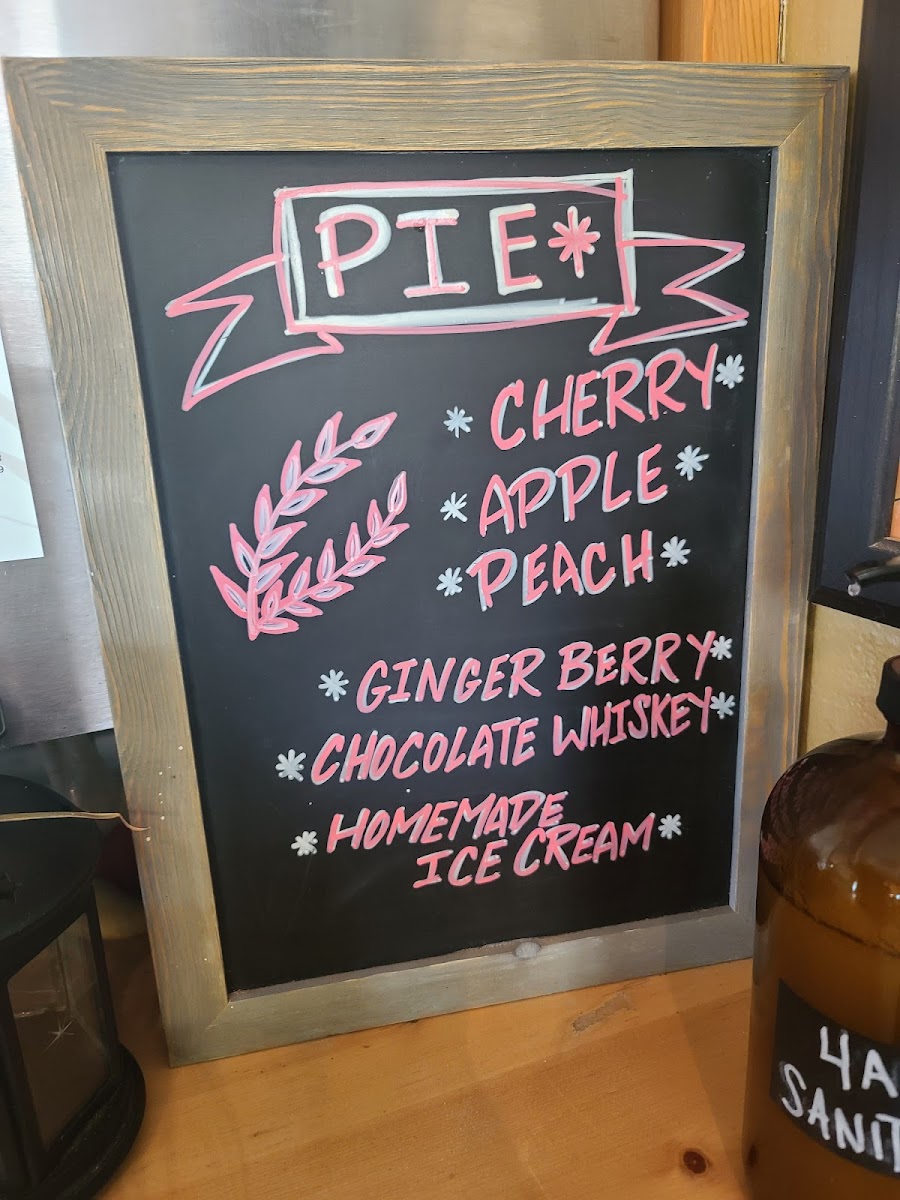 PIE*
* CHERRY *
* APPLE *
* PEACH *
* GINGER BERRY *
* CHOCOLATE WHISKEY *
* HOMEMADE
ICE CREAM *